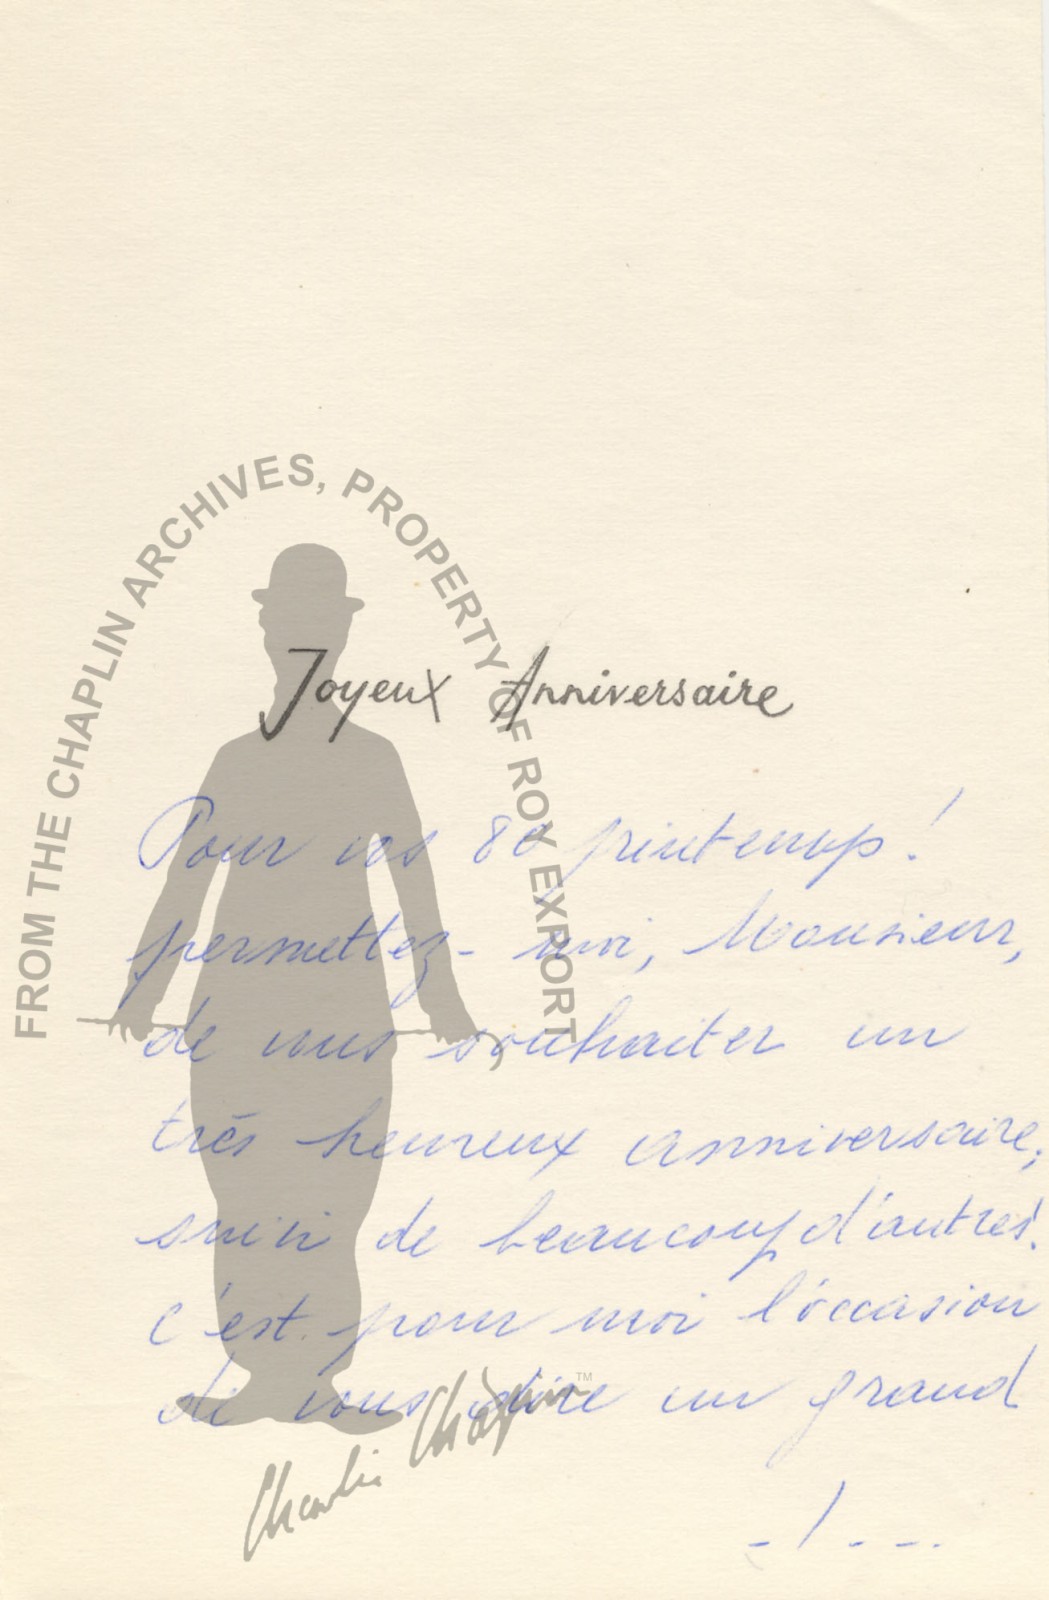 FROM THE CHAPLIN ARCHIVES, PROPERTY OF ROY EXPORT
Joyeux Anniversaire
Pour vos 80 printemps !
permettez-moi, Monsieur,
de vous souhaiter un
très heureux anniversaire,
suivi de beaucoup d'autres.
c'est pour moi l'occasion
de vous dire un grand
- / - - -
Charlie Chaplin ™